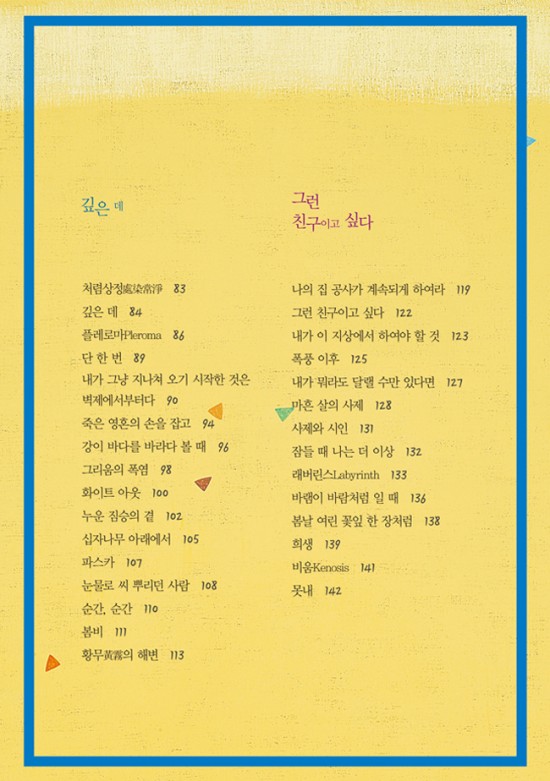 깊은 데
처렴상정處染常淨 83
깊은 데 84
플레로마Pleroma 86
단 한 번 89
내가 그냥 지나쳐 오기 시작한 것은
벽제에서부터다 90
죽은 영혼의 손을 잡고 94
강이 바다를 바라다 볼 때 96
그리움의 폭염 98
화이트 아웃 100
누운 짐승의 곁 102
십자나무 아래에서 105
파스카 107
눈물로 씨 뿌리던 사람 108
순간, 순간 110
봄비 111
황무黃霧의 해변 113
그런
친구이고 싶다
나의 집 공사가 계속되게 하여라 119
그런 친구이고 싶다 122
내가 이 지상에서 하여야 할 것 123
폭풍 이후 125
내가 뭐라도 달랠 수만 있다면 127
마흔 살의 사제 128
사제와 시인 131
잠들 때 나는 더 이상 132
래버린스Labyrinth 133
바램이 바람처럼 일 때 136
봄날 여린 꽃잎 한 장처럼 138
희생 139
비움Kenosis 141
못내 142